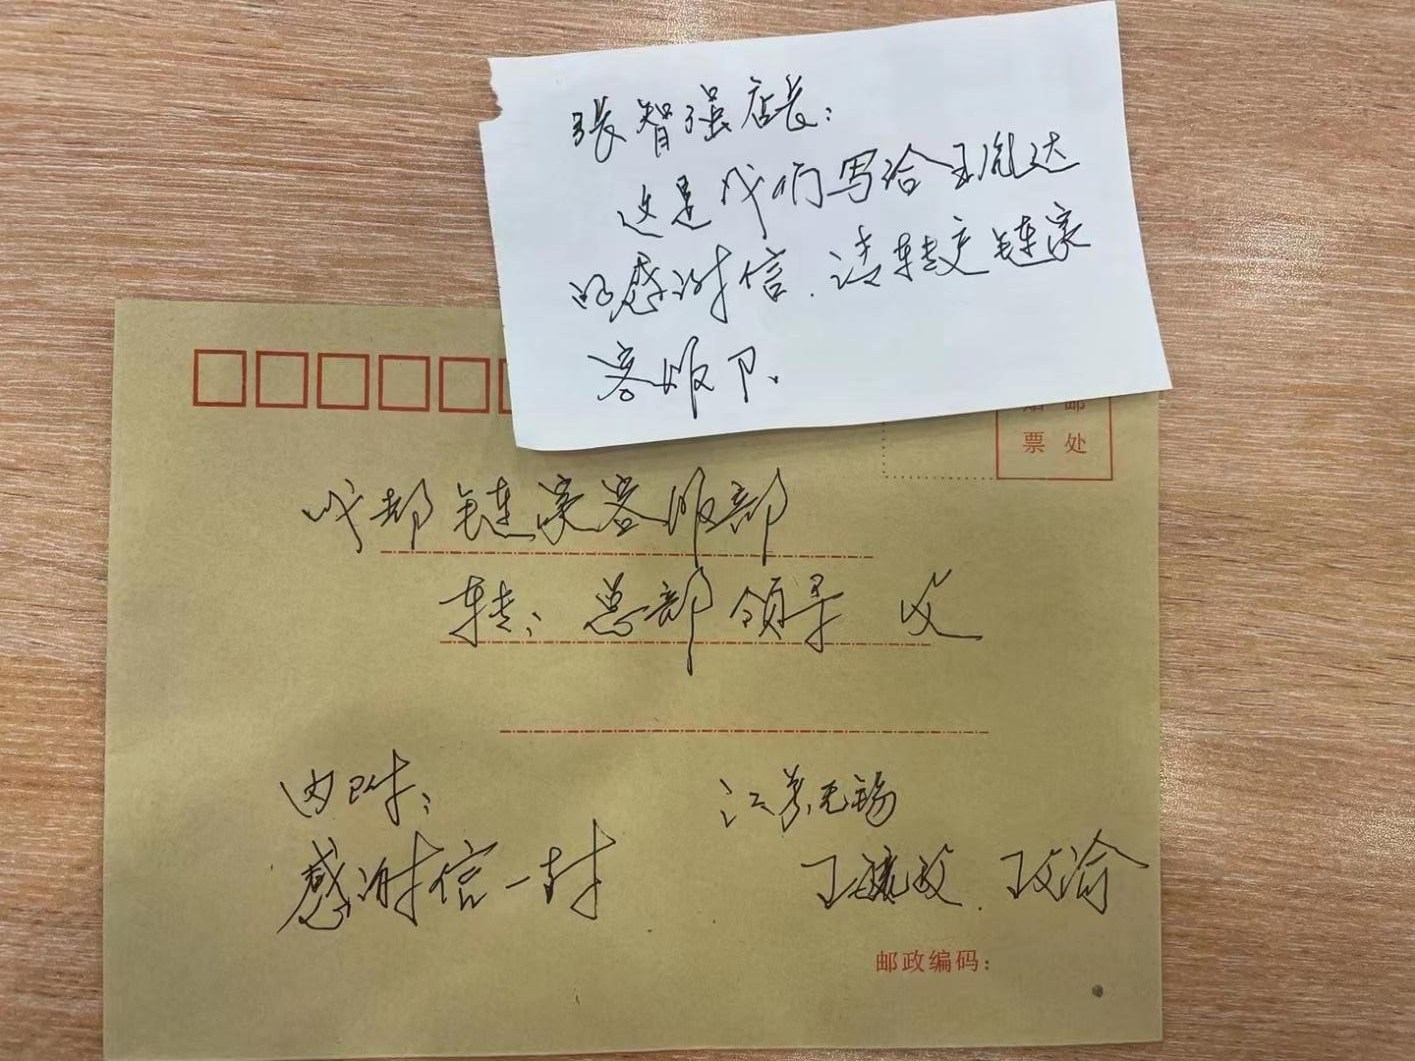 张智强店长：
这是我们写给王胤达
的感谢信．请转交链家
客服卩.
贴 邮
票 处
成都链家客服部
转：总部领导 收
内附：
感谢信一封
江苏无锡
王毓 政渝
邮政编码：